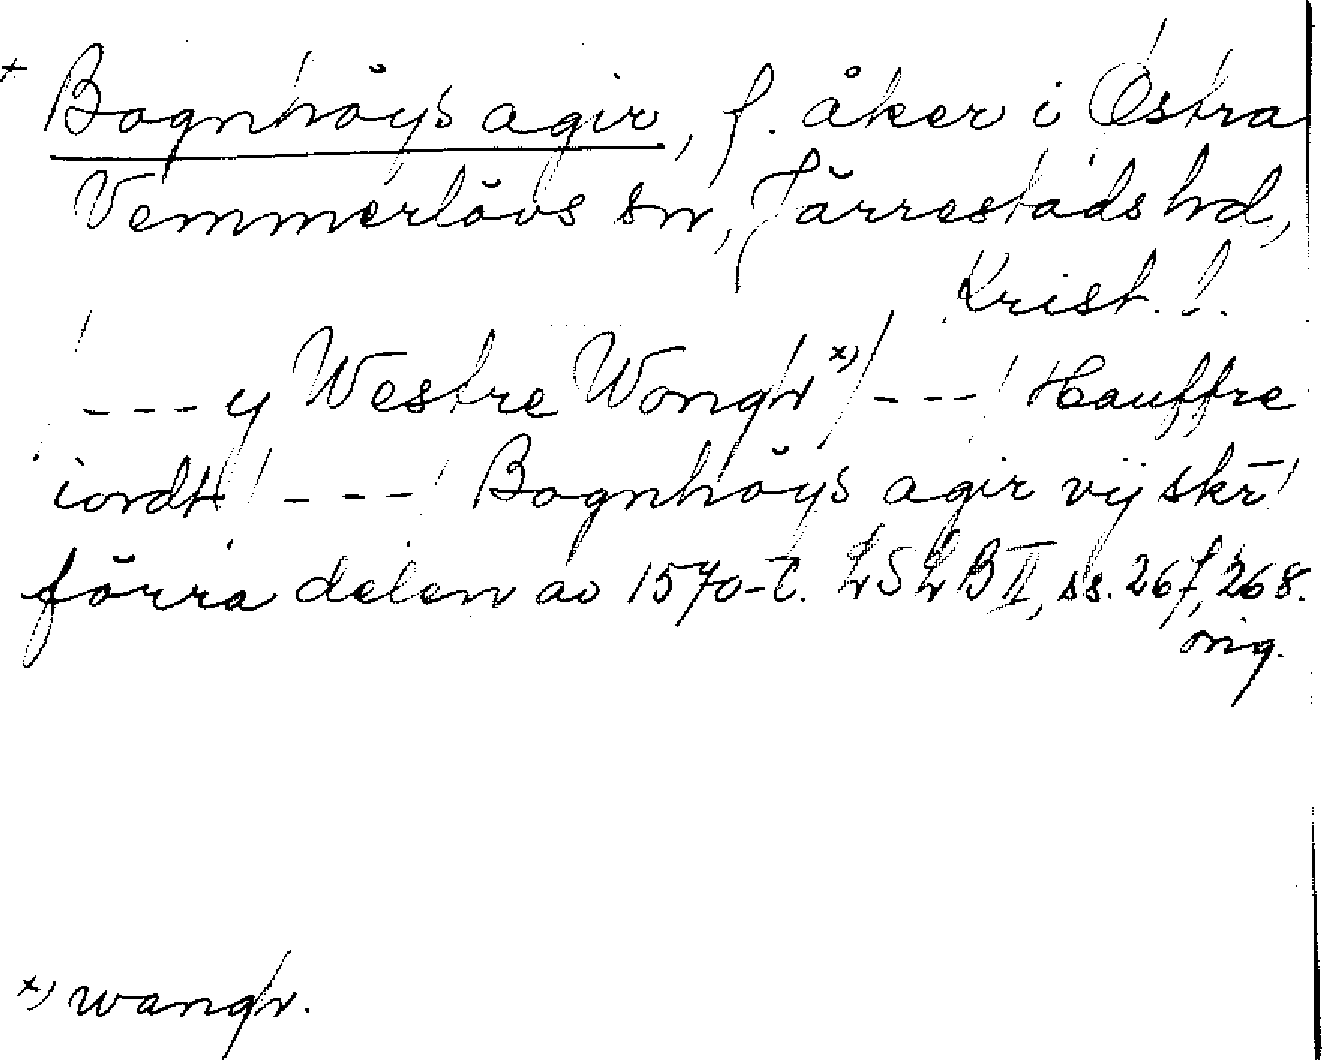 + Bognhöys agir, f. åker i Östra
Vemmerlövs sn, Järrestads hd,
Krist. l.
/---y Westre Wongh x)/---/ Hauffre
iordt/---/ Bognhöys agir vij skr̄/
förra delen av 1570-t. LSLB II, ss. 267, 268.
orig.
x) wangh.